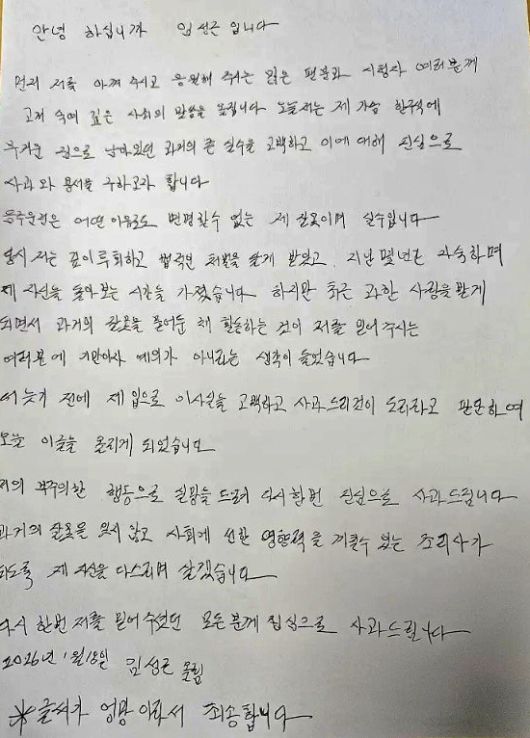 안녕 하십니까 임성근 입니다
먼저 저를 아껴 주시고 응원해 주시는 많은 팬분과 시청자 여러분께
고개 숙여 깊은 사죄의 말씀을 올립니다 오늘 저는 제 가슴 한구석에
무거운 짐으로 남아있던 과거의 큰 실수를 고백하고 이에 대해 진심으로
사과와 용서를 구하고자 합니다
음주운전은 어떤 이유로도 변명할수 없는 제 잘못이며 실수입니다
당시 저는 깊이 후회하고 법적인 처벌을 달게 받았고, 지난 몇년간 자숙하며
제 자신을 돌아보는 시간을 가졌습니다 하지만 최근 과한 사랑을 받게
되면서 과거의 잘못을 묻어둔 채 활동하는 것이 저를 믿어 주시는
여러분에 기만이자 예의가 아니라는 생각이 들었습니다
더 늦기 전에 제 입으로 이사실을 고백하고 사과 드리는것이 도리라고 판단하여
오늘 이글을 올리게 되었습니다
저의 부주의한 행동으로 실망을 드려 다시한번 진심으로 사과드립니다
과거의 잘못을 잊지 않고 사회에 선한 영향력을 끼칠수 있는 조리사가
되도록 제 자신을 다스리며 살겠습니다
다시 한번 저를 믿어 주셨던 모든 분께 진심으로 사과드립니다
2026년 1월 18일 임성근 올림
※글씨가 엉망이라서 죄송합니다